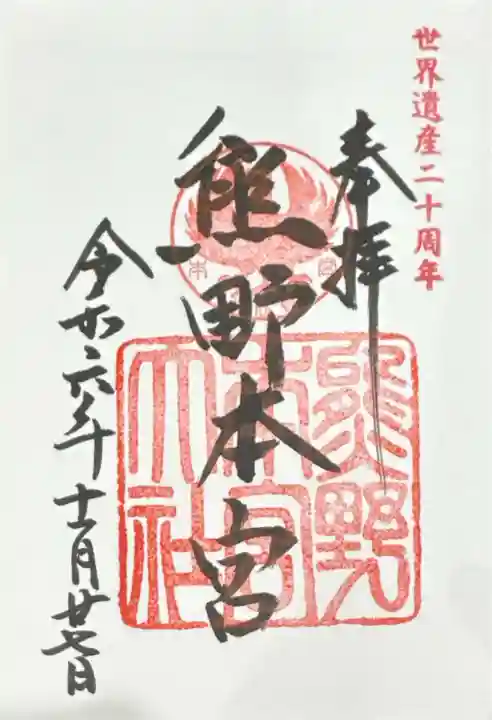 世界遺産二十周年
奉拝
熊野本宮
熊野
本宮
大社
令和六年十一月廿七日